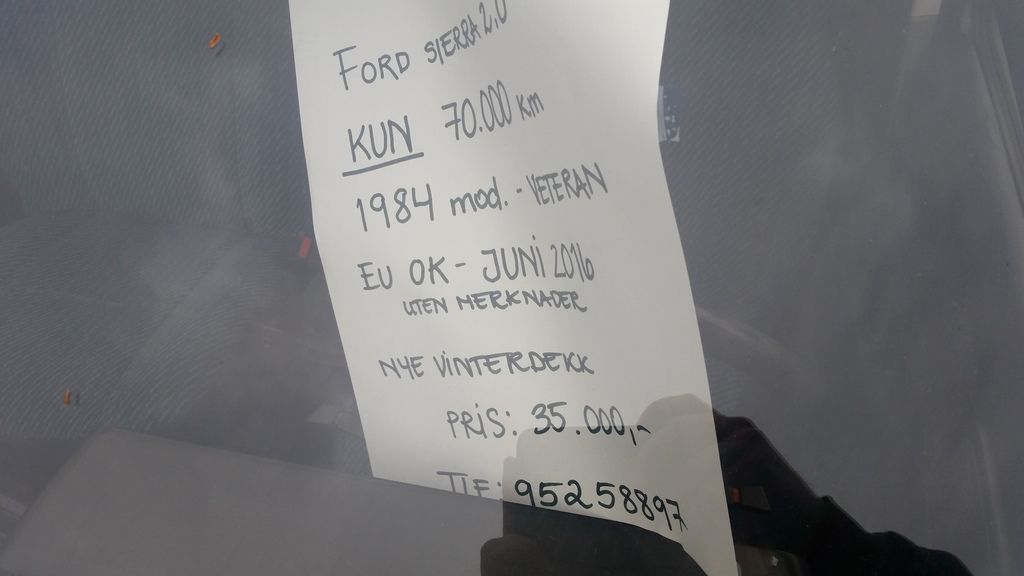 FORD SIERRA 2,0
KUN 70.000 km
1984 mod. - VETERAN
EU OK - JUNI 2016
UTEN MERKNADER
NYE VINTERDEKK
PRIS: 35.000,-
TLF: 95258897